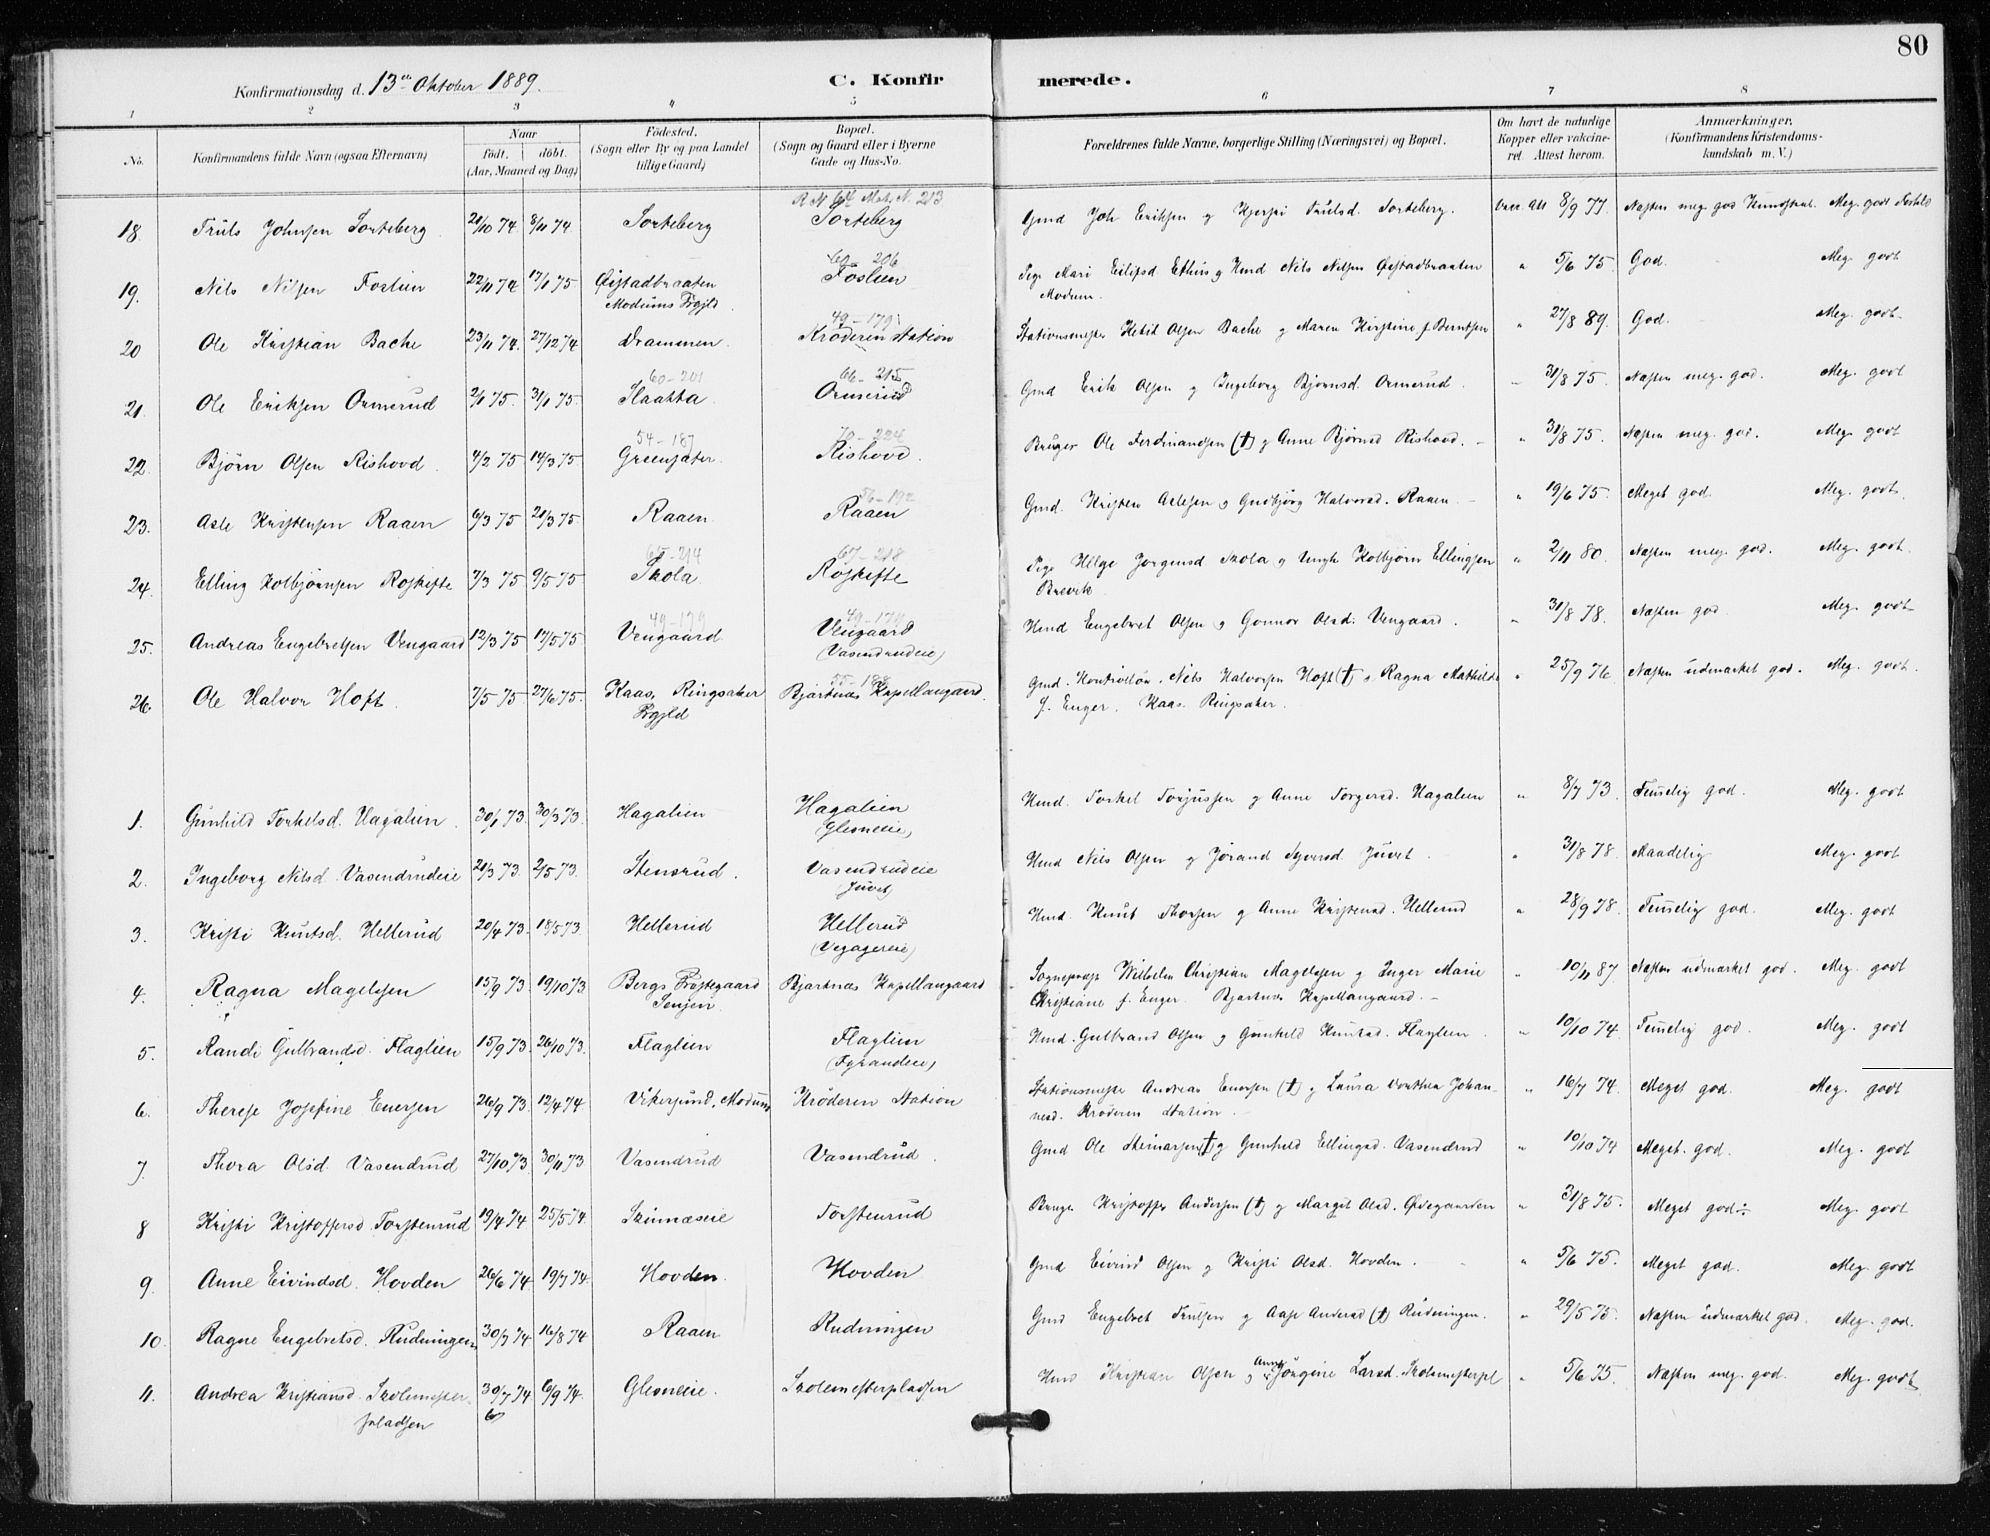 80
Konfirmationsdag d. 13de Oktober 1889.
C. Konfirmerede.
1 2 3 4 5 6 7 8
No.
Konfirmandens fulde Navn (ogsaa Efternavn)
Naar
födt. döbt.
(Aar, Maaned og Dag)
Födested.
(Sogn eller By og paa Landet
tillige Gaard)
Bopæl.
(Sogn og Gaard eller i Byerne
Gade og Hus-No.
Forældrenes fulde Navne, borgerlige Stilling (Næringsvei) og Bopæl.
Om havt de naturlige
Kopper eller vakcine-
ret. Attest herom.
Anmærkninger.
(Konfirmandens Kristendoms-
kundskab m. V.)
64 Mat. N. 213
18. Truls Johnsen Sorteberg 21/10 74 8/11 74 Sorteberg Sorteberg Gmd Joh Eriksen og Kjersti Trulsd. Sorteberg. Vacc. Att 8/9 77. Næsten meg. god Kundskab. Meg. godt Forhold
60-206
19. Nils Nilsen Foslien 22/11 74 17/1 75 Øistadbraaten Foslien Pige Mari Eilifsd Ethus og Ungk Nils Nilsen Øistadbraaten " 5/6 75. God. Meg. godt
Modums Prgjld. Modum.
49-179
20 Ole Kristian Bache 23/11 74. 27/12 74 Drammen. Krøderen Station Stationsmester Ketil Olsen Bache og Maren Kirstine f. Berntsen " 27/8 89. God. Meg. godt.
60-201 66-215
21. Ole Eriksen Ormerud 2/1 75. 31/1 75. Slaatta. Ormerud Gmd Erik Olsen og Ingeborg Bjørnsd. Ormerud. 31/8 75. Næsten meg. god. Meg. godt
54-187 70-224
22. Bjørn Olsen Rishovd. 4/2 75 14/3 75 Grensjøter. Rishovd. Bruger Ole Ferdinandsen (†) og Anne Bjørnsd Rishovd. " 31/8 75. Næsten meg. god. Meg. godt
56-192
23. Asle Kristensen Raaen 6/3 75 21/3 75. Raaen Raaen Gmd. Kristen Aslesen og Gudbjørg Halvorsd. Raaen. " 19/6 75. Meget god. Meg. godt.
65-214 67-218
24. Elling Kolbjørnsen Røskifte 7/3 75 9/5 75 Skola. Røskifte Pige Helge Jørgensd Skola og Ungk Kolbjørn Ellingsen " 2/11 80. Næsten meg. god. Meg. godt.
Brevik.
49-179 49-179
25. Andreas Engebretsen Vengaard 12/3 75 17/5 75 Vengaard Vengaard Hmd Engebret Olsen og Gonnor Olsd: Vengaard. " 31/8 78. Næsten god. Meg. godt
(Vasendrudeie)
55-188
26. Ole Halvor Hoft. 7/5 75 27/6 75. Kaas, Ringsaker Bjertnæs Kapellangaard. Gmd. Kontrollør. Nils Halvorsen Hoft (†) og Ragna Mathilde " 25/9 76. Næsten udmærket god. Meg. godt.
Prgjld f. Enger. Kaas. Ringsaker.
1. Gunhild Torkelsd. Hagalien. 30/1 73. 30/3 73. Hagalien Hagalien Hmd. Torkel Torjussen og Anne Torgersd. Hagalien " 8/7 73. Temelig god. Meg. godt
(Glesneeie)
2. Ingeborg Nilsd. Vasendrudeie 21/3 73. 2/5 73. Stensrud. Vasendrudeie Hmd Nils Olsen og Jørand Syversd. Juvet. " 31/8 78. Maadelig Meg. godt
Juvet
3. Kristi Knutsd. Hellerud 20/4 73. 18/5 73. Hellerud Hellerud Hmd. Knut Thorsen og Anne Kristensd. Hellerud " 28/9 78. Temelig god. Meg. godt
4. Ragna Magelssen 15/9 73. 19/10 73. Bergs Præstegaard Bjertnæs Kapellangaard Sognepræst Wilhelm Christian Magelssen og Inger Marie " 10/11 87. Næsten udmærket god. Meg. godt
Senjen. Christiane f. Enger. Bjertnæs Kapellangaard.
5. Randi Gulbrandsd. Flaglien 15/9 73. 26/10 73. Flaglien Flaglien Hmd. Gulbrand Olsen og Gunhild Knutsd. Flaglien. " 10/10 74. Temelig god. Meg. godt
6. Therese Josefine Enersen 26/9 73. 12/4 74. Vikersund, Modum Krøderen Station Stationsmester Andreas Enersen (†) og Laura Dorthea Johan- " 16/7 74. Meget god. Meg. godt
nesd. Krøderen Station.
7. Thora Olsd Vasendrud 27/10 73 30/11 73 Vasendrud Vasendrud. Gmd Ole Steinarsen (†) og Gunhild Ellingsd. Vasendrud " 10/10 74 Meget god. Meg. godt
8 Kristi Kristoffersd. Torstenrud 19/4 74 25/5 74. Skinnæseie Torstenrud Bruger Kristoffer Andersen (†) og Margit Olsd. Ødegaarden " 31/8 75. Meget god÷ Meg. godt
9. Anne Eivindsd. Hovden 26/6 74 19/7 74. Hovden. Hovden Gmd Eivind Olsen og Kristi Olsd. Hovden. " 5/6 75. Meget god. Meg. godt
10. Ragne Engebretsd. Rudningen 30/7 74 16/8 74 Raaen Rudningen Gmd Engebret Trulsen og Aase Andersd (†) Rudningen. " 29/5 75. Næsten udmærket god. Meg. god.
11. Andrea Kristiansd. Skolemester- 30/7 74 6/9 74. Glesneeie. Skolemesterpladsen Hmd Kristian Olsen og Anne Jørgine Larsd. Skolemesterpl " 5/6 75. Næsten meg. god. Meg. godt
pladsen